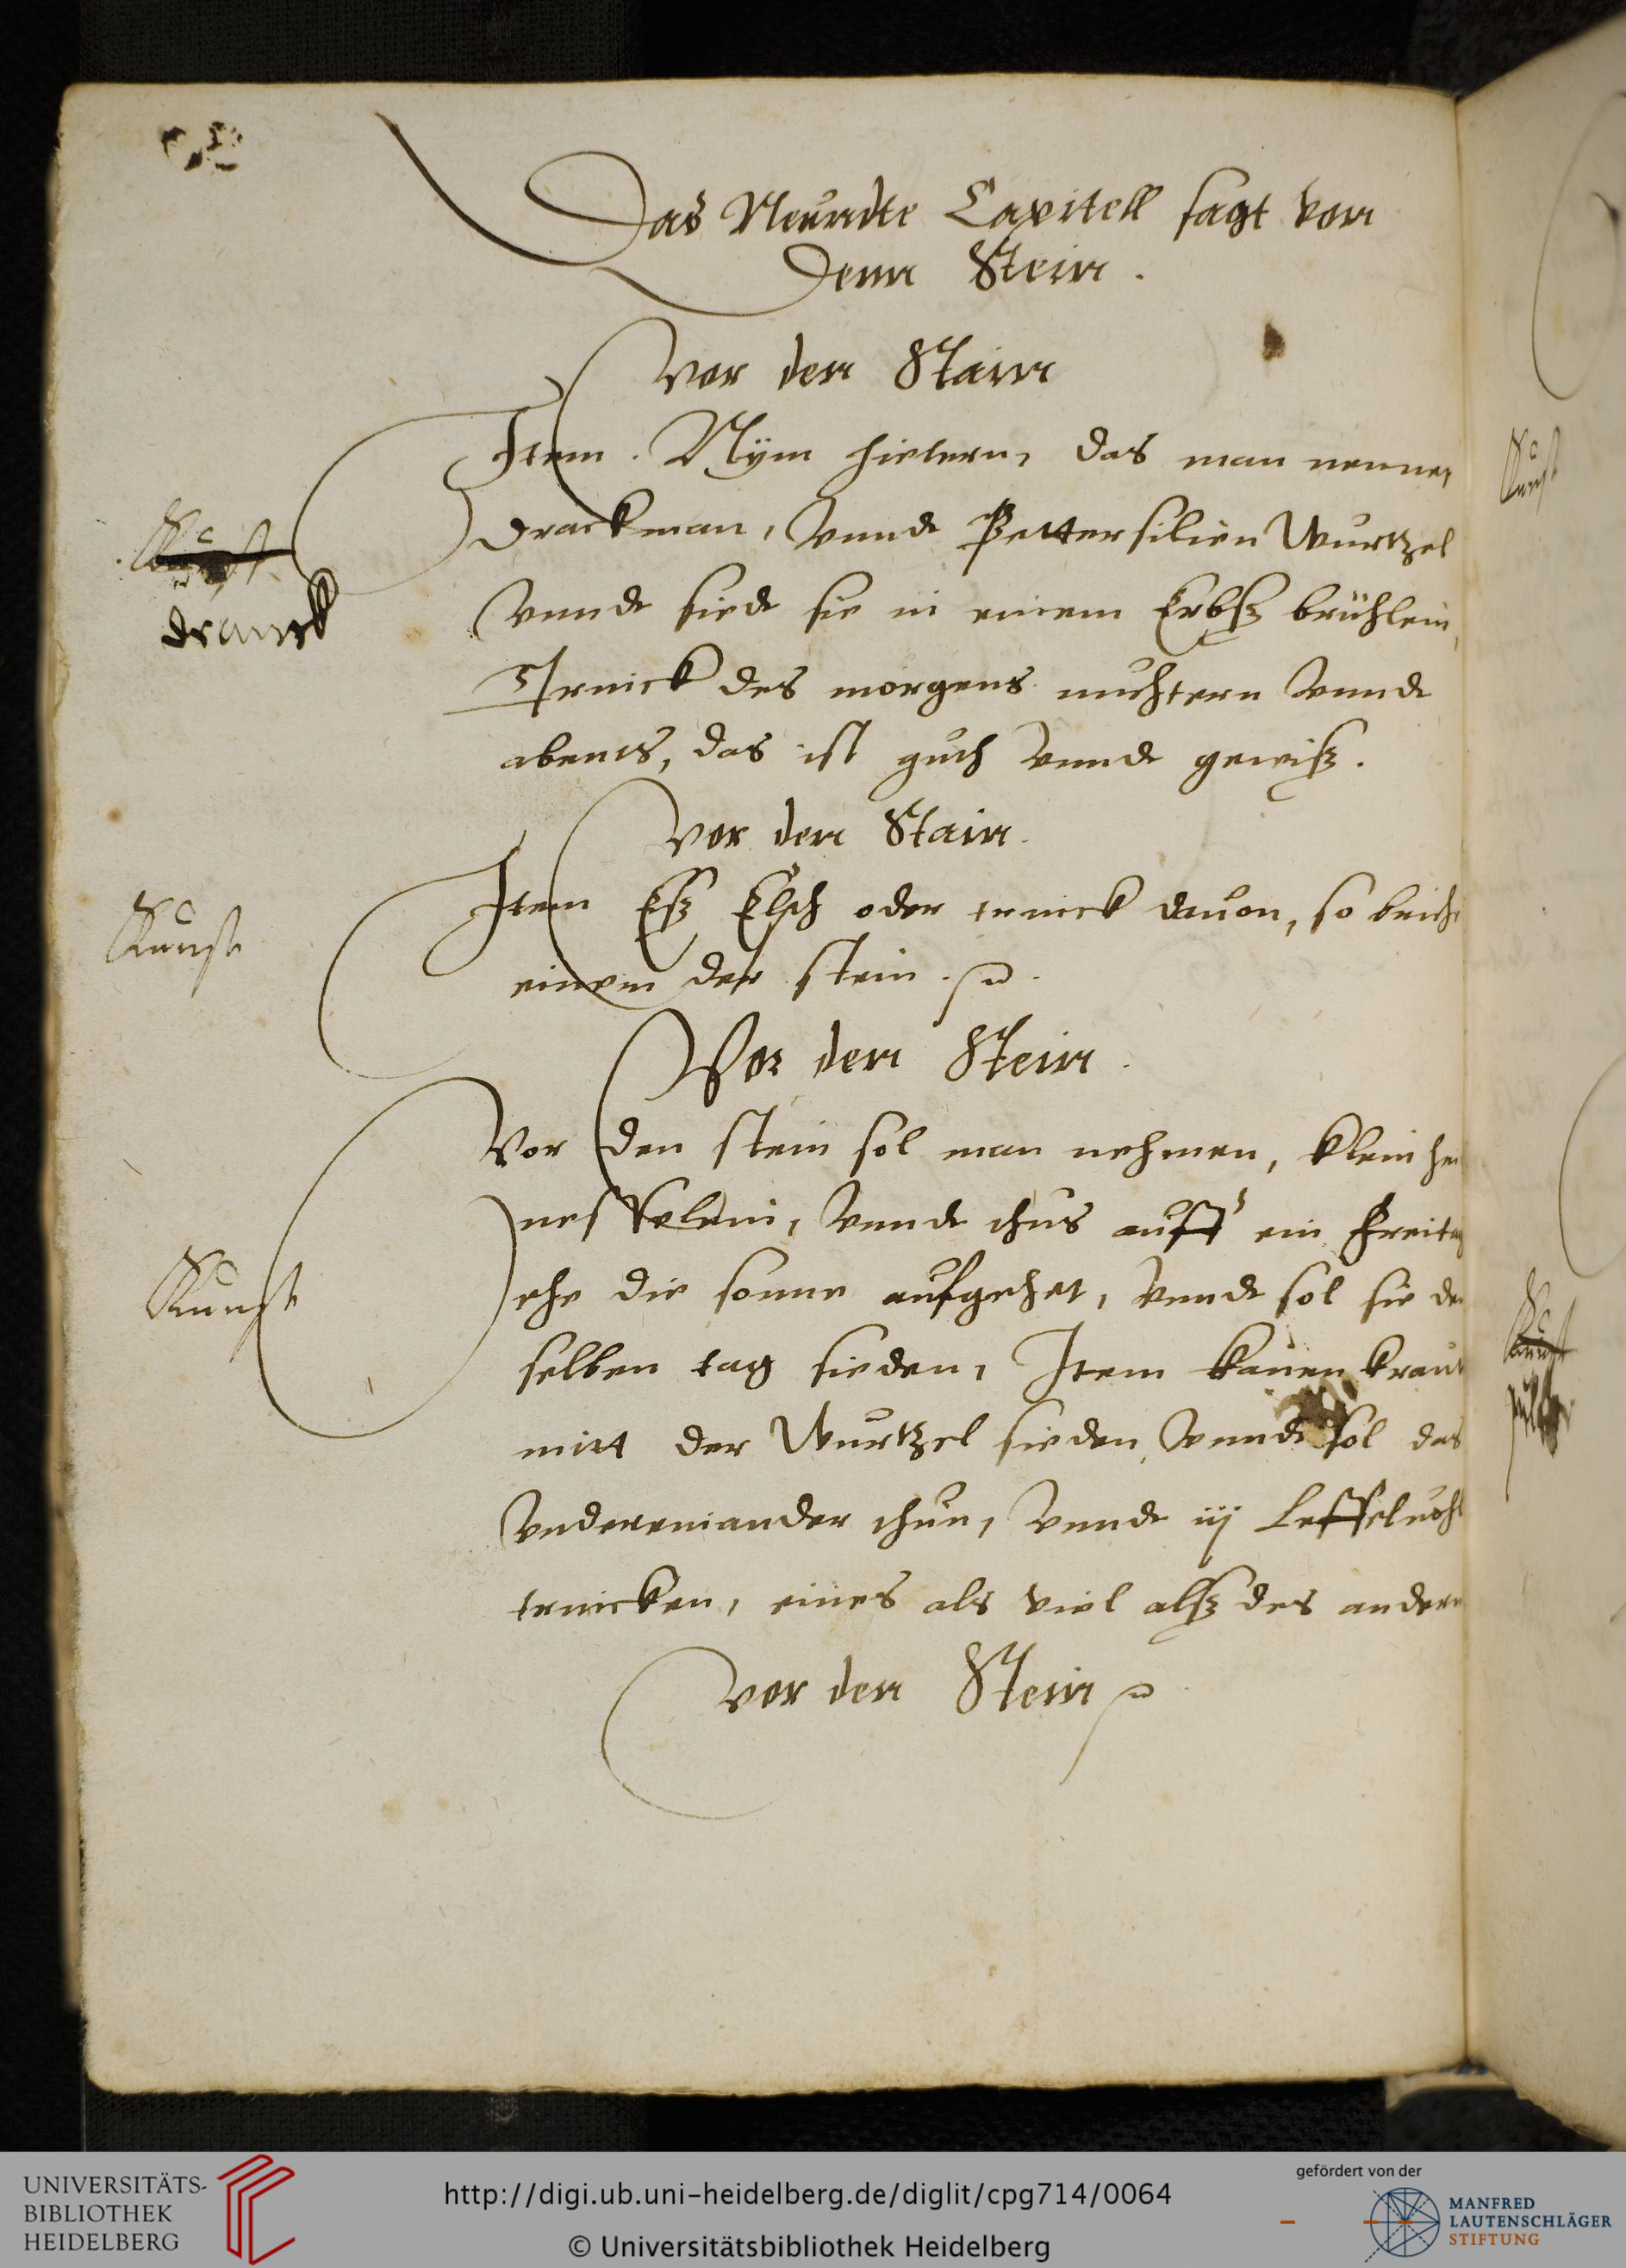 Das Neundte Capitell sagt von
Denn Stein.
Vor den Stain
Item. Nÿm hietern, das man nennet
Drackman, vnnde Pettersilien Wurtzel
Vnnde siede sie in einem Erbsz brühlein,
Trinck des morgens nuchtern vnnde
abents, das ist guth vnnde gewisz.
Kunst
dranck
Vor den Stain.
Item Esz Elsch oder trinck dauon, so bricht
einem der stein.
Kunst
Vor den Stein.
Vor den stein sol man nehmen, klein hei
nesselein, vnnde thus auff ein Freitag
ehe die sonne aufgehet, vnnde sol sie den
selben tag sieden, Item kauen kraut
mitt der Wurtzel sieden, vnnde sol das
Vndereinander thun, vnnde iij Leffel
trincken, eines als viel alsz des andern
Kunst
Vor den Stein
Kunst
Kunst
UNIVERSITÄTS-
BIBLIOTHEK
HEIDELBERG
http://digi.ub.uni-heidelberg.de/diglit/cpg714/0064
© Universitätsbibliothek Heidelberg
gefördert von der
MANFRED
LAUTENSCHLÄGER
STIFTUNG